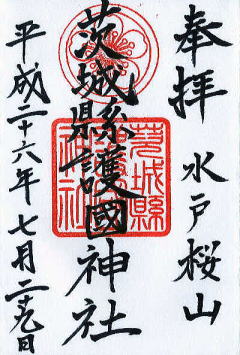 奉拝 水戸桜山
茨城縣護國神社
茨城縣護國神社
平成二十六年七月二十九日